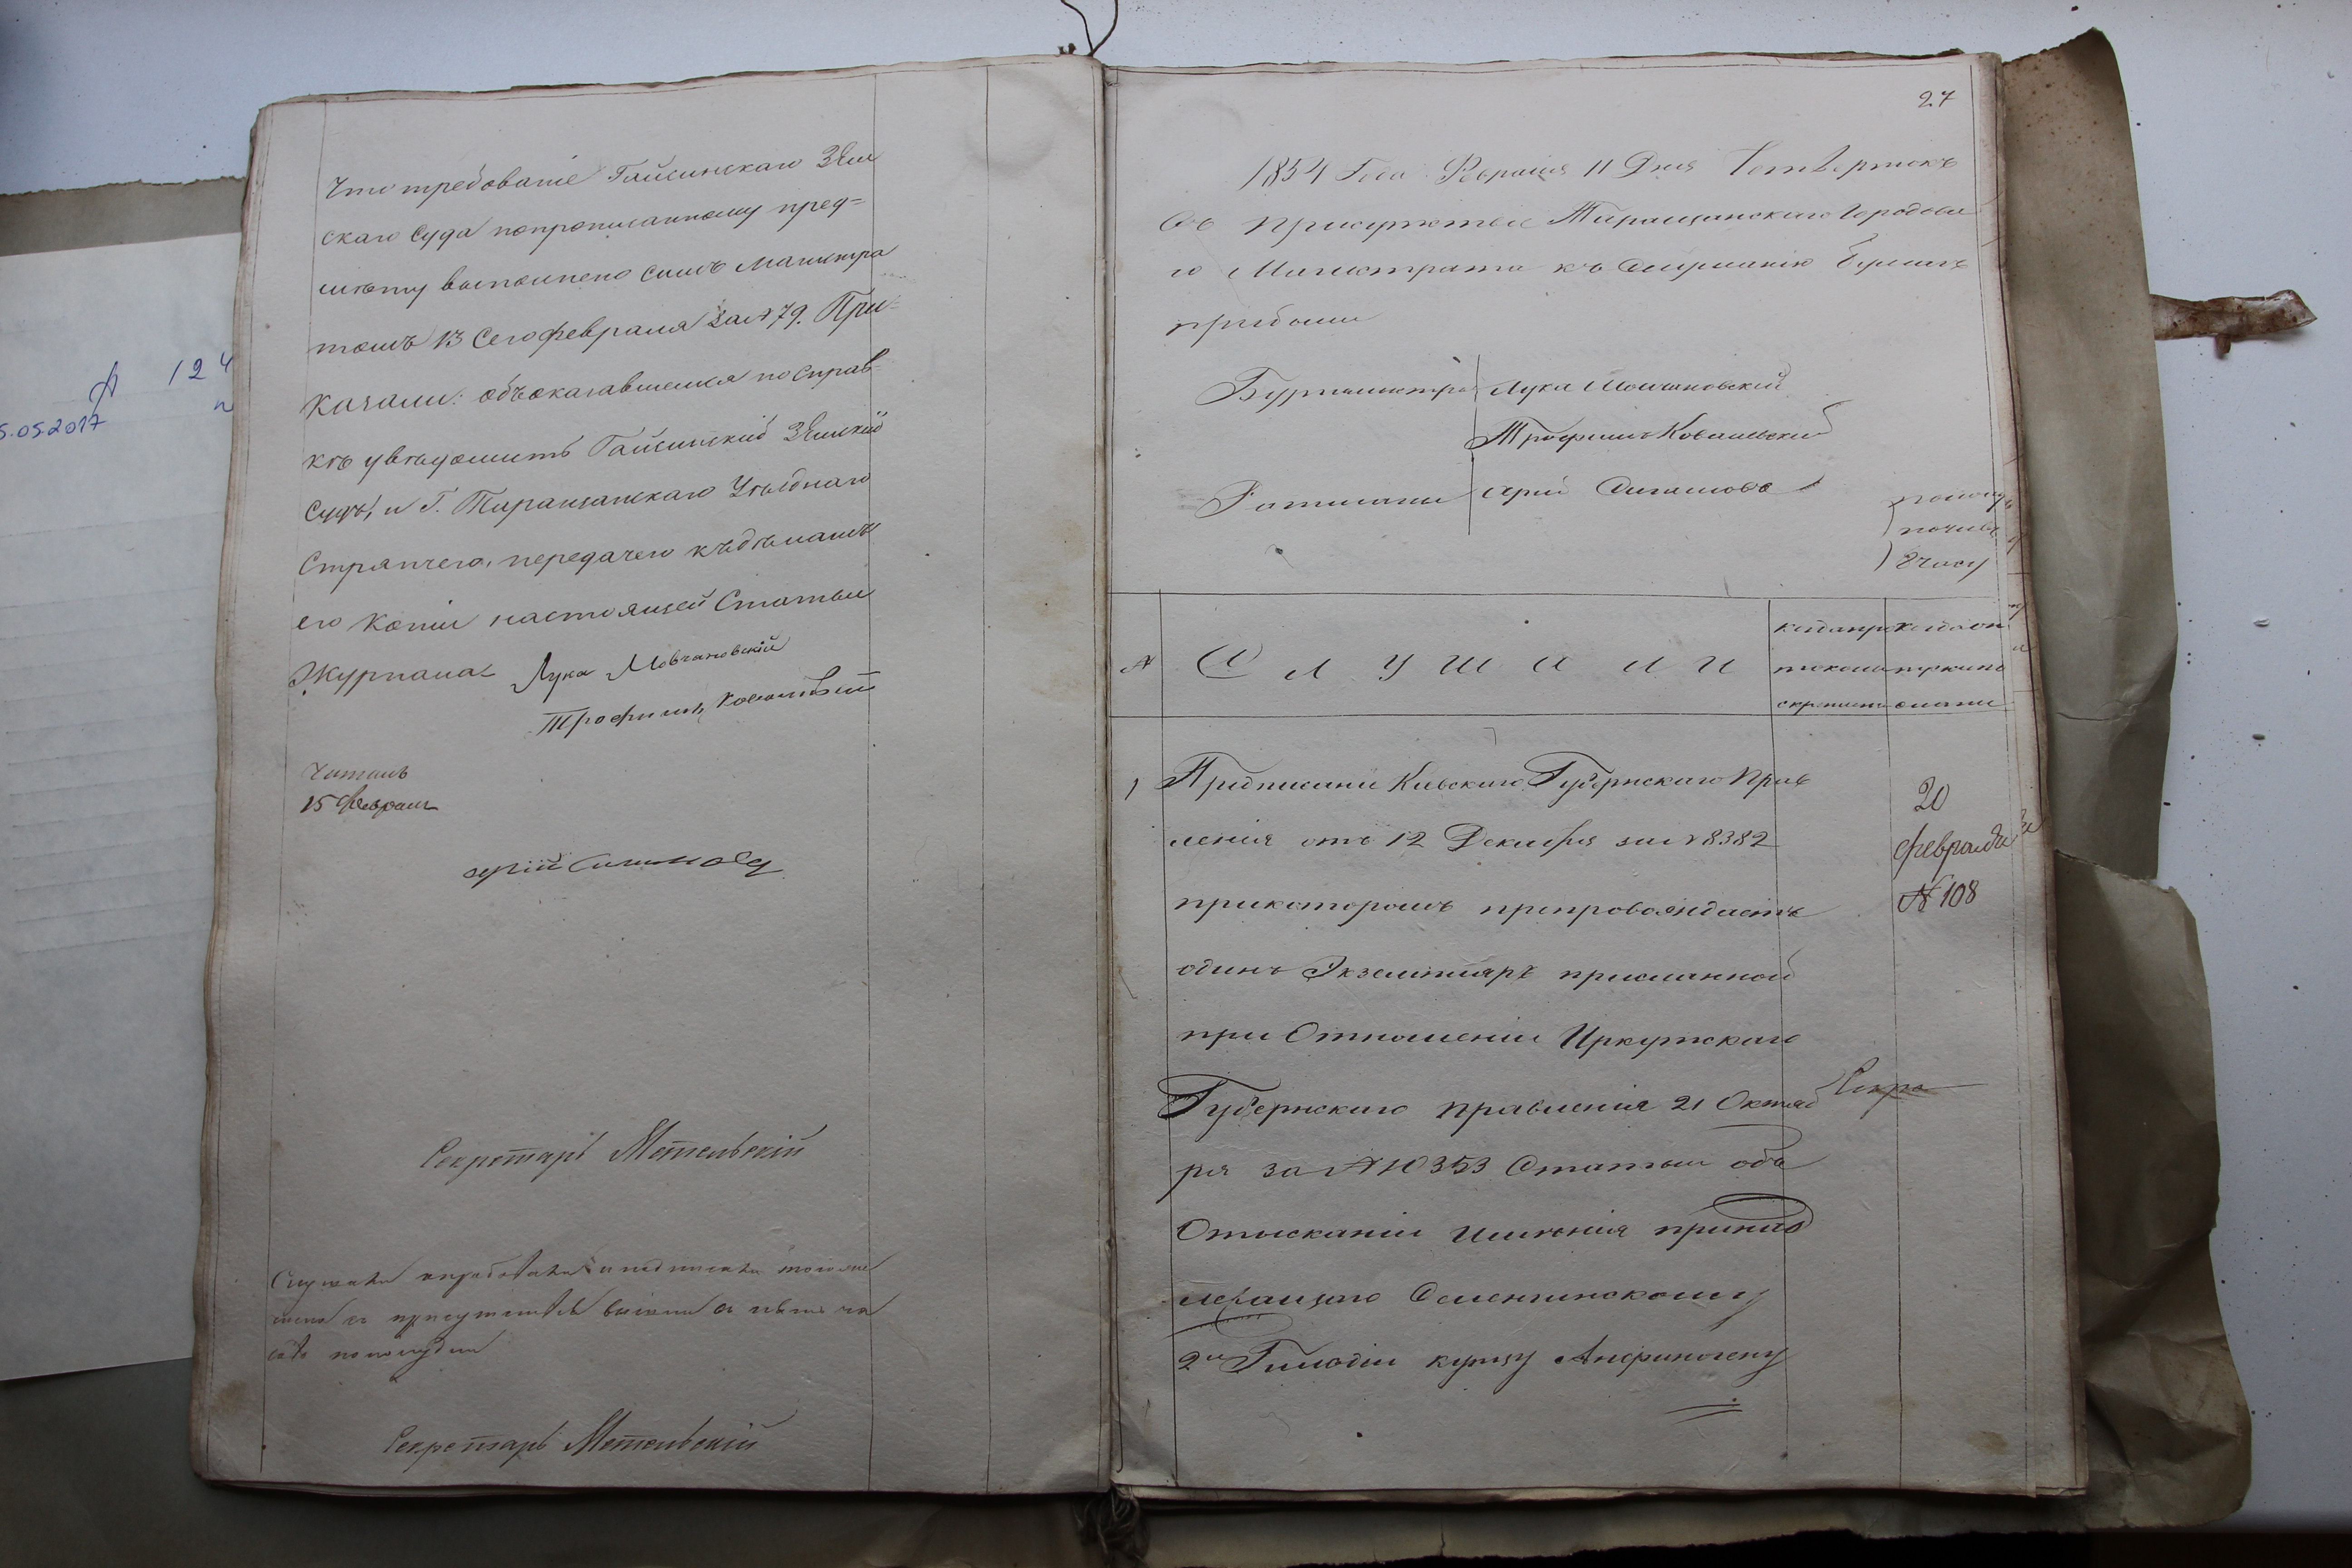 Что требованіе Гайсинскаго Зем
скаго Суда попрописанному пред=
мѣту выполнено симъ Магистра
томъ 13 Сего февраля за № 79. При=
казали: объоказавшемся по справ=
кѣ увѣдомить Гайсинскій Земскій
Судъ, и Г. Таращанскаго Уѣзднаго
Стряпчего, передачею къдѣламъ
его Копіи настоящей Статьи
Журнала
Лука Мовчановскій
Трофимъ Ковалевскій
Читалъ
15 февраля
Секретарь Метельскій
Слушали и подписали того же
числа
по полудни
Секретарь Метельскій
27
1854 Года Февраля 11 Дня Четвертокъ
Въ присутствіе Таращанскаго Городова
го Магистрата къ Слушанію бумагъ
прибыли
Бургомистръ Лука Молчановскій
Трофимъ Ковалевскій
Ратманы
8 часу
№ Слушали
когда про
токолъ
скрепленъ
когда от
1 Предписаніе Кіевскаго Губернскаго Прав
ленія отъ 12 Декабря за № 8382
прикоторомъ препровождаетъ
одинъ Экземпляръ присланной
при Отношеніи Иркутскаго
Губернскаго правленія 21 Октяб
ря за № 10353 Статьи объ
Отысканіи имѣнія принад
лежащаго Селенгинскому
2й Гильдіи купцу Анфиногену
20
февраля
№ 108
Секре
А 124
5.05.2017